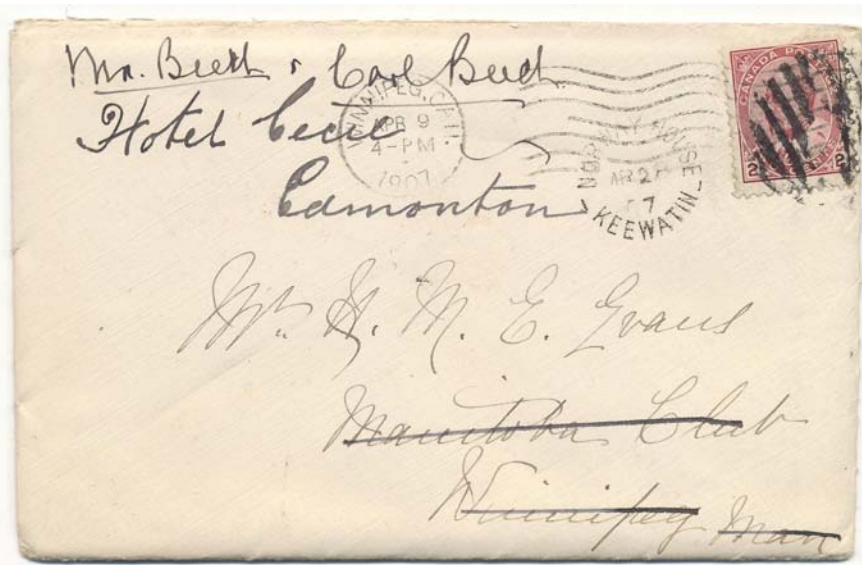 Mr. Beech, Carl Beech
Hotel Cecil
Edmonton
WINNIPEG, CAN.
APR 9
4-PM
1907
NORWAY HOUSE
KEEWATIN
CANADA POSTAGE
2
2
Mr. H. M. E. Evans
Manitoba Club
Winnipeg Man